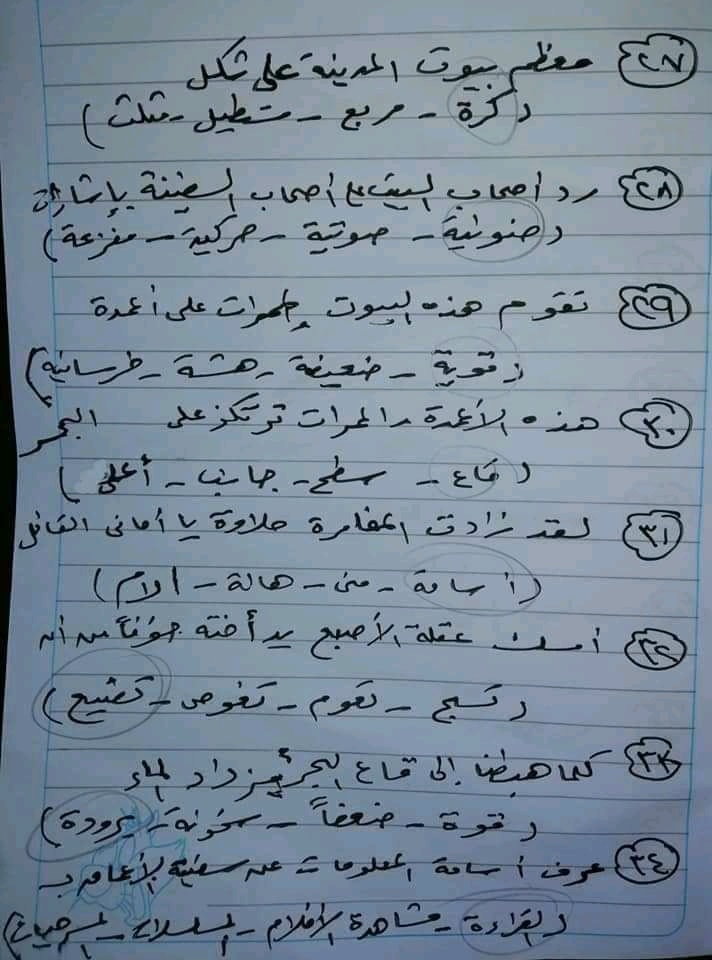 ٢٧ معظم بيوت المدينة على شكل
(كرة - مربع - مستطيل - مثلث)
٢٨ رد أصحاب السيف على أصحاب السفينة بإشارات
(ضوئية - صوتية - حركية - مفزعة)
٢٩ تقوم هذه البيوت والممرات على أعمدة
(قوية - ضعيفة - هشة - خرسانية)
٣٠ هذه الأعمدة والممرات ترتكز على البحر
(قاع - سطح - جانب - أعلى)
٣١ لقد زادت المغامرة حلاوة يا أمانى القائل
(أسامة - منى - هالة - الأم)
٣٢ أمسك عقلة الأصبع يد أخته خوفاً من أن
(تسبح - تقوم - تغوص - تضيع)
٣٣ كلما هبطنا إلى قاع البحر يزداد الماء
(قوة - ضعفاً - سخونة - برودة)
٣٤ عرف أسامة المعلومات عن سفينة الأعماق بـ
(القراءة - مشاهدة الأفلام - المسلسلات - المسرحيات)